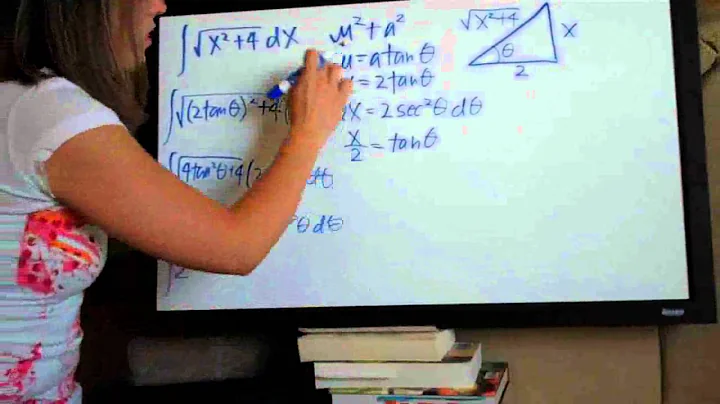 ∫√x²+4 dx
u²+a²
u = a tan θ
= 2 tan θ
∫√(2tanθ)²+4
dx = 2 sec²θ dθ
x/2 = tan θ
∫√4tan²θ+4 (2 dθ
²θ dθ
∫2
√x²+4
x
θ
2